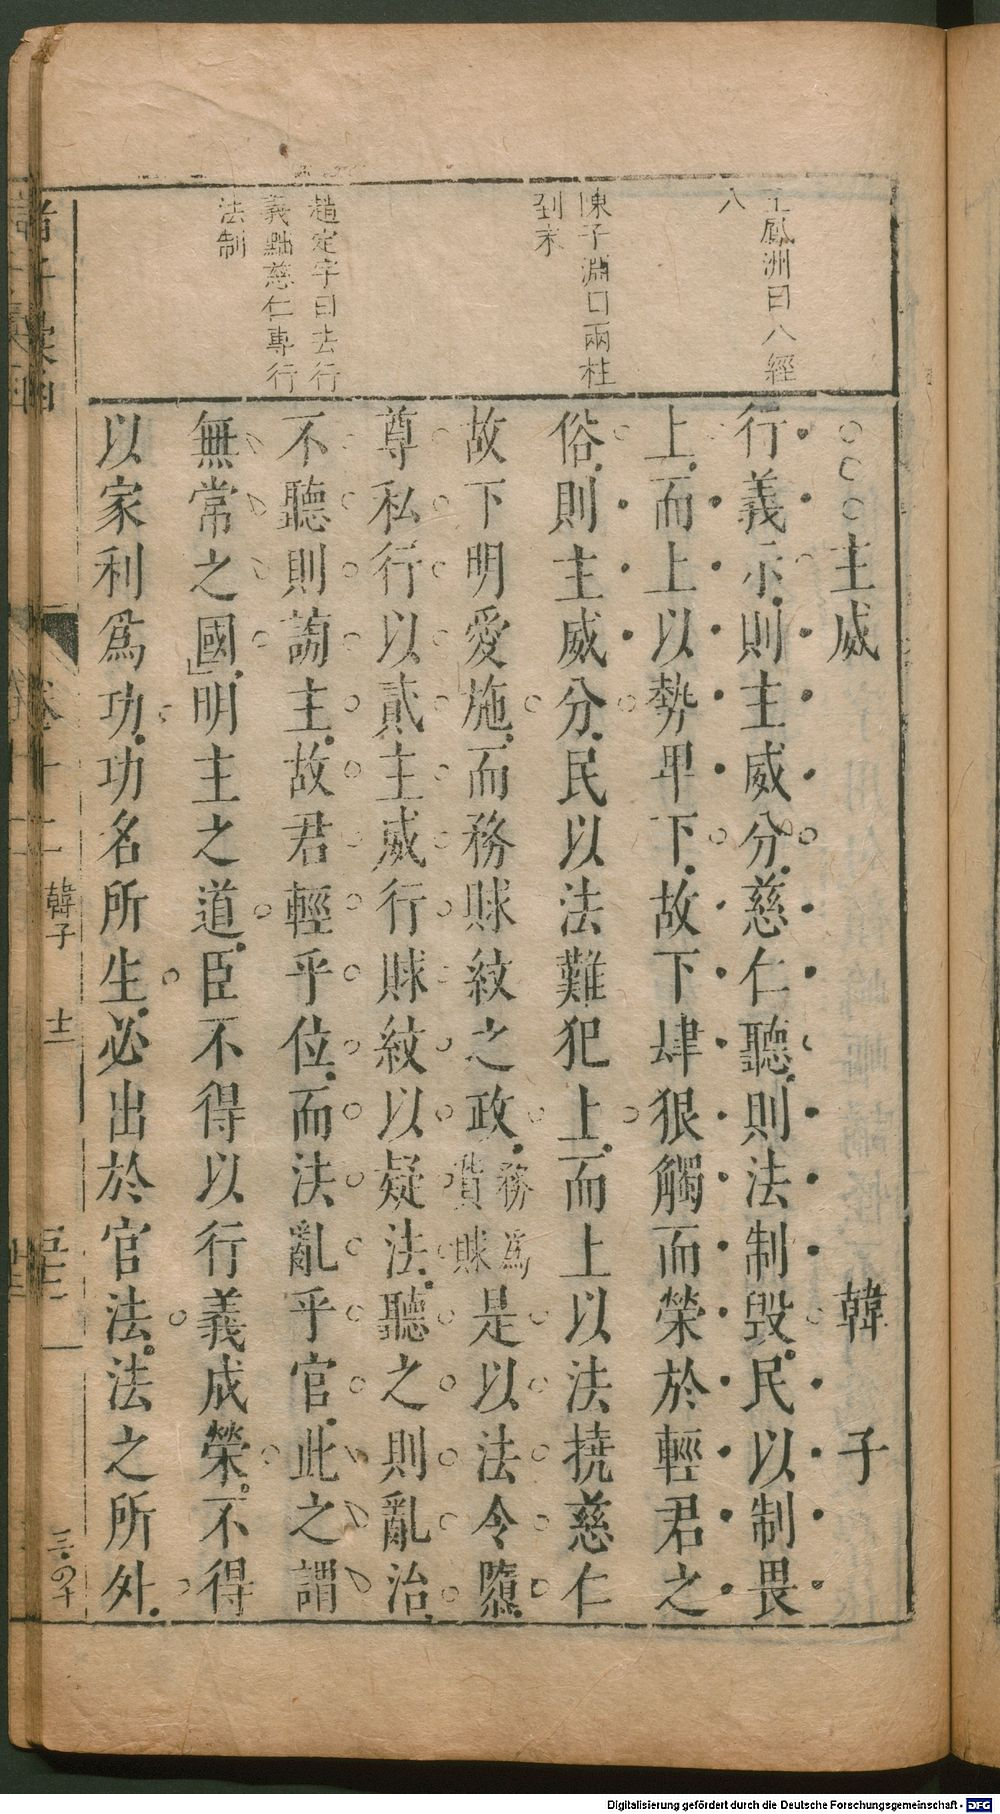 王鳳洲曰八經
八
陳子淵曰兩柱
到末
趙定宇曰去行
義黜慈仁專行
法制
○○○主威 韓子
行義示則主威分慈仁聽則法制毀民以制畏
上而上以勢卑下故下肆狠觸而榮於輕君之
俗則主威分民以法難犯上而上以法撓慈仁
故下明愛施而務賕紋之政務爲貨賕是以法令隳
尊私行以貳主威行賕紋以疑法聽之則亂治
不聽則謗主故君輕乎位而法亂乎官此之謂
無常之國明主之道臣不得以行義成榮不得
以家利爲功功名所生必出於官法法之所外
諸子彙函
卷十二
韓子
十二
三〇十
Digitalisierung gefördert durch die Deutsche Forschungsgemeinschaft - DFG